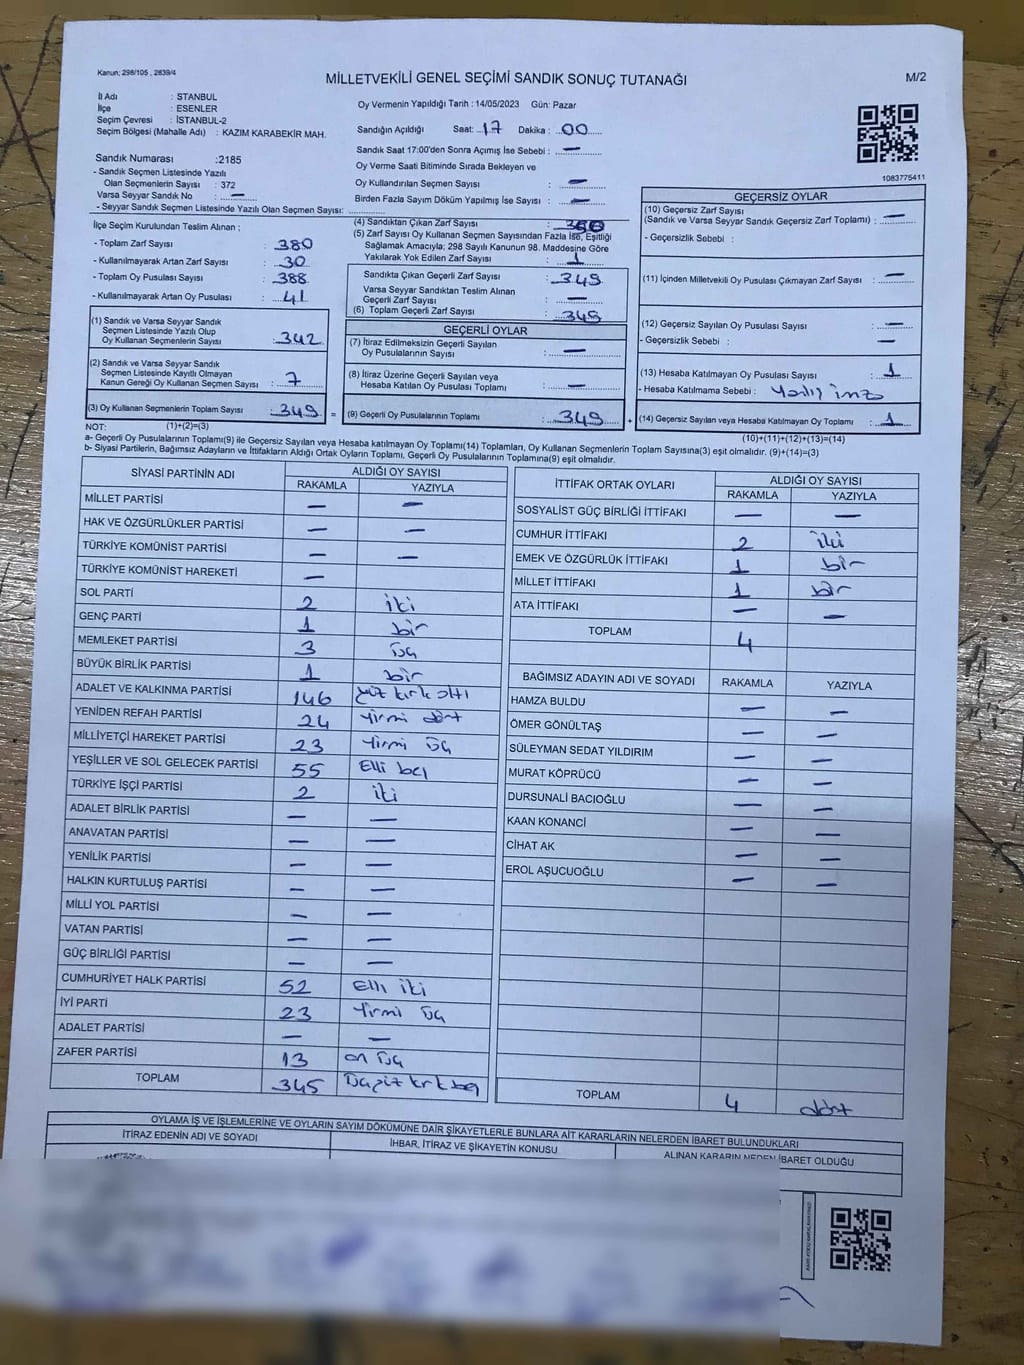 Kanun; 298/105 , 2839/4
MİLLETVEKİLİ GENEL SEÇİMİ SANDIK SONUÇ TUTANAĞI
M/2
İl Adı : STANBUL
İlçe : ESENLER
Seçim Çevresi : İSTANBUL-2
Seçim Bölgesi (Mahalle Adı) : KAZIM KARABEKİR MAH.
Sandık Numarası :2185
- Sandık Seçmen Listesinde Yazılı
Olan Seçmenlerin Sayısı : 372
Varsa Seyyar Sandık No : —
- Seyyar Sandık Seçmen Listesinde Yazılı Olan Seçmen Sayısı:
Oy Vermenin Yapıldığı Tarih : 14/05/2023 Gün: Pazar
Sandığın Açıldığı Saat: 17 Dakika : 00
Sandık Saat 17:00'den Sonra Açımış İse Sebebi : —
Oy Verme Saati Bitiminde Sırada Bekleyen ve
Oy Kullandırılan Seçmen Sayısı : —
Birden Fazla Sayım Döküm Yapılmış İse Sayısı : —
1083775411
İlçe Seçim Kurulundan Teslim Alınan ;
- Toplam Zarf Sayısı : 380
- Kullanılmayarak Artan Zarf Sayısı : 30
- Toplam Oy Pusulası Sayısı : 388
- Kullanılmayarak Artan Oy Pusulası : 41
(1) Sandık ve Varsa Seyyar Sandık
Seçmen Listesinde Yazılı Olup
Oy Kullanan Seçmenlerin Sayısı : 342
(2) Sandık ve Varsa Seyyar Sandık
Seçmen Listesinde Kayıtlı Olmayan
Kanun Gereği Oy Kullanan Seçmen Sayısı : 7
(3) Oy Kullanan Seçmenlerin Toplam Sayısı : 349
(4) Sandıktan Çıkan Zarf Sayısı : 350
(5) Zarf Sayısı Oy Kullanan Seçmen Sayısından Fazla İse, Eşitliği
Sağlamak Amacıyla; 298 Sayılı Kanunun 98. Maddesine Göre
Yakılarak Yok Edilen Zarf Sayısı : 1
Sandıkta Çıkan Geçerli Zarf Sayısı : 349
Varsa Seyyar Sandıktan Teslim Alınan
Geçerli Zarf Sayısı : —
(6) Toplam Geçerli Zarf Sayısı : 349
GEÇERLİ OYLAR
(7) İtiraz Edilmeksizin Geçerli Sayılan
Oy Pusulalarının Sayısı : —
(8) İtiraz Üzerine Geçerli Sayılan veya
Hesaba Katılan Oy Pusulası Toplamı : —
= (9) Geçerli Oy Pusulalarının Toplamı : 349 +
GEÇERSİZ OYLAR
(10) Geçersiz Zarf Sayısı
(Sandık ve Varsa Seyyar Sandık Geçersiz Zarf Toplamı) : —
- Geçersizlik Sebebi :
(11) İçinden Milletvekili Oy Pusulası Çıkmayan Zarf Sayısı : —
(12) Geçersiz Sayılan Oy Pusulası Sayısı : —
- Geçersizlik Sebebi : —
(13) Hesaba Katılmayan Oy Pusulası Sayısı : 1
- Hesaba Katılmama Sebebi :
(14) Geçersiz Sayılan veya Hesaba Katılmayan Oy Toplamı : 1
NOT: (1)+(2)=(3)
(10)+(11)+(12)+(13)=(14)
a- Geçerli Oy Pusulalarının Toplamı(9) ile Geçersiz Sayılan veya Hesaba katılmayan Oy Toplamı(14) Toplamları, Oy Kullanan Seçmenlerin Toplam Sayısına(3) eşit olmalıdır. (9)+(14)=(3)
b- Siyasi Partilerin, Bağımsız Adayların ve İttifakların Aldığı Ortak Oyların Toplamı, Geçerli Oy Pusulalarının Toplamına(9) eşit olmalıdır.
SİYASİ PARTİNİN ADI ALDIĞI OY SAYISI
RAKAMLA YAZIYLA
MİLLET PARTİSİ — —
HAK VE ÖZGÜRLÜKLER PARTİSİ — —
TÜRKİYE KOMÜNİST PARTİSİ — —
TÜRKİYE KOMÜNİST HAREKETİ —
SOL PARTİ 2 iki
GENÇ PARTİ 1 bir
MEMLEKET PARTİSİ 3 üç
BÜYÜK BİRLİK PARTİSİ 1 bir
ADALET VE KALKINMA PARTİSİ 146 yüz kırk altı
YENİDEN REFAH PARTİSİ 24 Yirmi dört
MİLLİYETÇİ HAREKET PARTİSİ 23 Yirmi üç
YEŞİLLER VE SOL GELECEK PARTİSİ 55 Elli beş
TÜRKİYE İŞÇİ PARTİSİ 2 iki
ADALET BİRLİK PARTİSİ — —
ANAVATAN PARTİSİ — —
YENİLİK PARTİSİ — —
HALKIN KURTULUŞ PARTİSİ — —
MİLLİ YOL PARTİSİ — —
VATAN PARTİSİ — —
GÜÇ BİRLİĞİ PARTİSİ — —
CUMHURİYET HALK PARTİSİ 52 Elli iki
İYİ PARTİ 23 Yirmi üç
ADALET PARTİSİ — —
ZAFER PARTİSİ 13 on üç
TOPLAM 345 Üçyüz kırk beş
İTTİFAK ORTAK OYLARI ALDIĞI OY SAYISI
RAKAMLA YAZIYLA
SOSYALİST GÜÇ BİRLİĞİ İTTİFAKI — —
CUMHUR İTTİFAKI 2 iki
EMEK VE ÖZGÜRLÜK İTTİFAKI 1 bir
MİLLET İTTİFAKI 1 bir
ATA İTTİFAKI — —
TOPLAM 4
BAĞIMSIZ ADAYIN ADI VE SOYADI RAKAMLA YAZIYLA
HAMZA BULDU — —
ÖMER GÖNÜLTAŞ — —
SÜLEYMAN SEDAT YILDIRIM — —
MURAT KÖPRÜCÜ — —
DURSUNALİ BACIOĞLU — —
KAAN KONANCİ — —
CİHAT AK — —
EROL AŞUCUOĞLU — —
TOPLAM 4 dört
OYLAMA İŞ VE İŞLEMLERİNE VE OYLARIN SAYIM DÖKÜMÜNE DAİR ŞİKAYETLERLE BUNLARA AİT KARARLARIN NELERDEN İBARET BULUNDUKLARI
İTİRAZ EDENİN ADI VE SOYADI İHBAR, İTİRAZ VE ŞİKAYETİN KONUSU ALINAN KARARIN NEDEN İBARET OLDUĞU